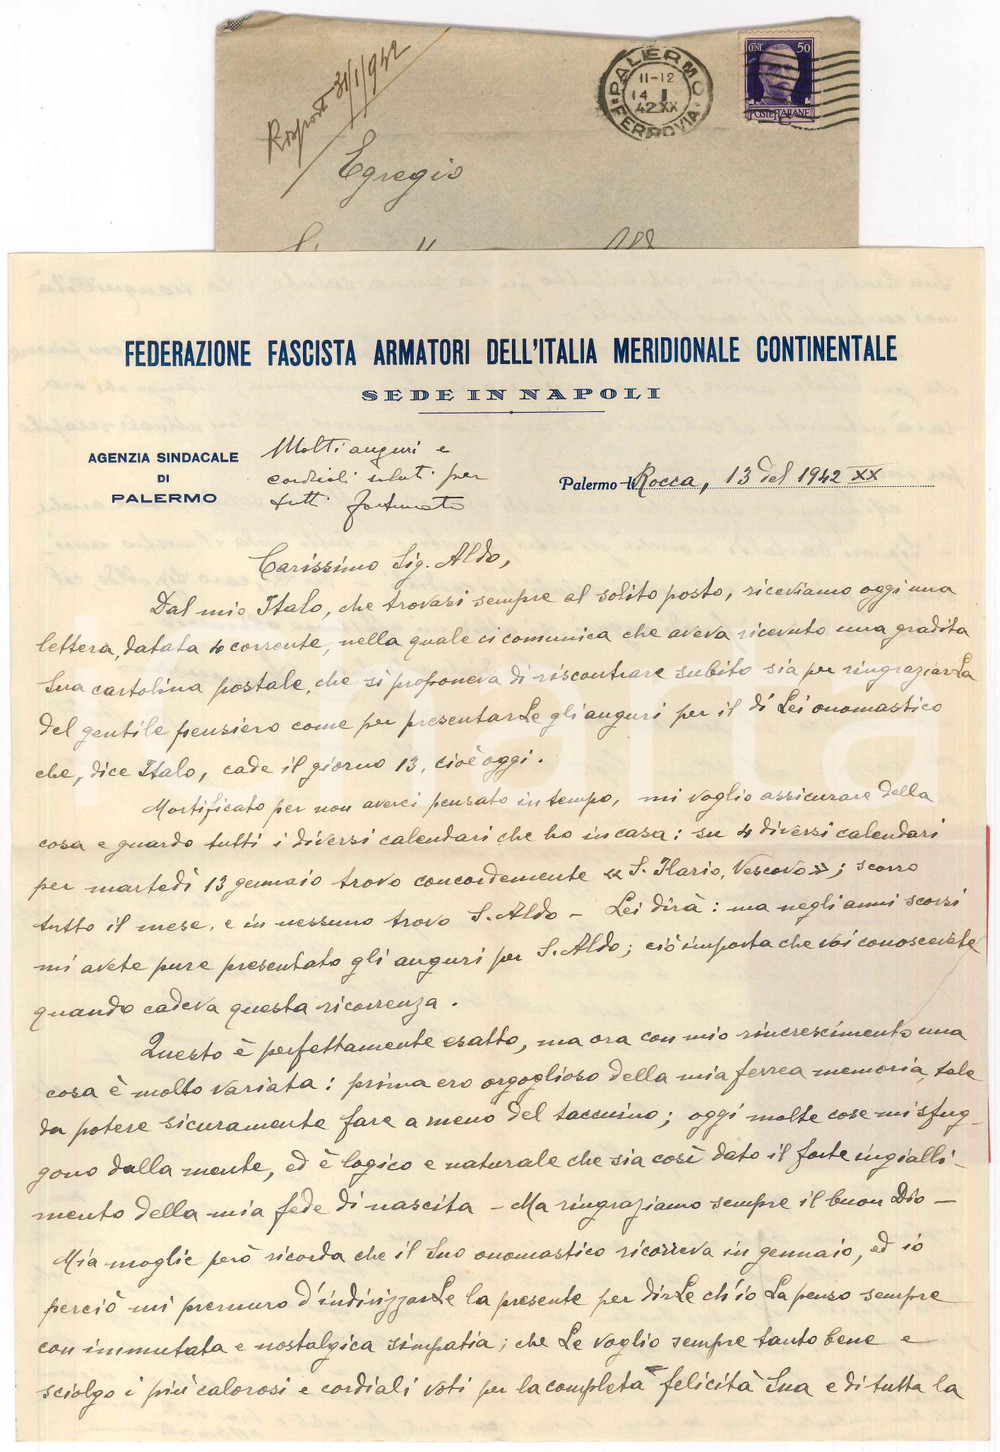 Risposto 31/1/942
PALERMO
11-12
14 I
42 XX
FERROVIA
CENT. 50
POSTE ITALIANE
Egregio
FEDERAZIONE FASCISTA ARMATORI DELL'ITALIA MERIDIONALE CONTINENTALE
SEDE IN NAPOLI
AGENZIA SINDACALE
DI
PALERMO
Molti auguri e
cordiali saluti per
tutti Fortunato
Palermo li Rocca, 13 del 1942 XX
Carissimo Sig. Aldo,
Dal mio Italo, che trovasi sempre al solito posto, riceviamo oggi una
lettera, datata 4 corrente, nella quale ci comunica che aveva ricevuto una gradita
Sua cartolina postale, che si proponeva di riscontrare subito sia per ringraziarLa
del gentile pensiero come per presentarLe gli auguri per il di Lei onomastico
che, dice Italo, cade il giorno 13, cioè oggi.
Mortificato per non averci pensato in tempo, mi voglio assicurare della
cosa e guardo tutti i diversi calendari che ho in casa: su 4 diversi calendari
per martedì 13 gennaio trovo concordemente « S. Ilario, Vescovo »; scorro
tutto il mese, e in nessuno trovo S. Aldo - Lei dirà: ma negli anni scorsi
mi avete pure presentato gli auguri per S. Aldo; ciò importa che voi conoscevate
quando cadeva questa ricorrenza.
Questo è perfettamente esatto, ma ora con mio rincrescimento una
cosa è molto variata: prima ero orgoglioso della mia ferrea memoria, tale
da potere sicuramente fare a meno del taccuino; oggi molte cose mi sfug-
gono dalla mente, ed è logico e naturale che sia così dato il forte ingialli-
mento della mia fede di nascita - Ma ringraziamo sempre il buon Dio -
Mia moglie però ricorda che il Suo onomastico ricorreva in gennaio, ed io
perciò mi premuro d'indirizzarLe la presente per dirLe ch'io La penso sempre
con immutata e nostalgica simpatia; che Le voglio sempre tanto bene e
sciolgo i più calorosi e cordiali voti per la completa felicità Sua e di tutta la